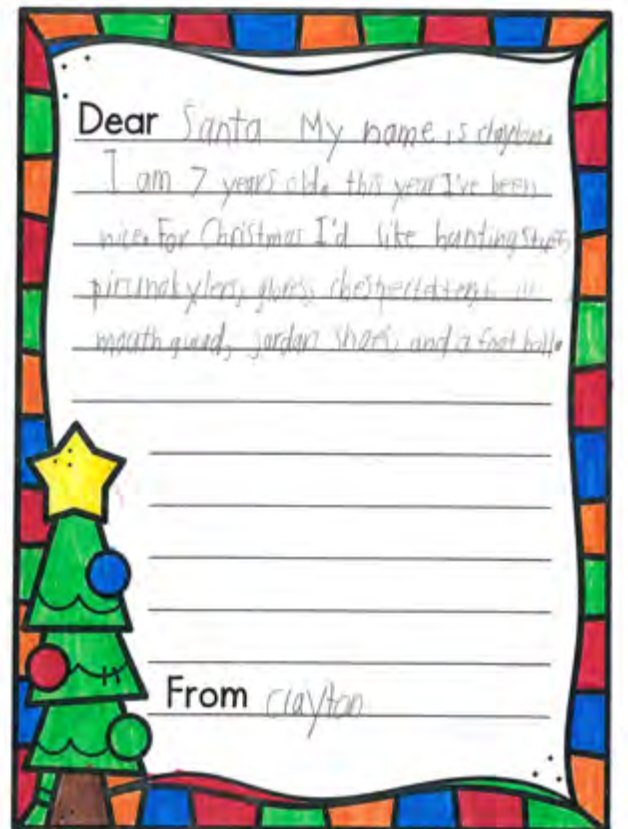 Dear Santa My name is clayton.
I am 7 years old. this year I've been
nice. For Christmas I'd like hunting
gloves,
mouth guard, jordan shoes, and a foot ball.
From clayton